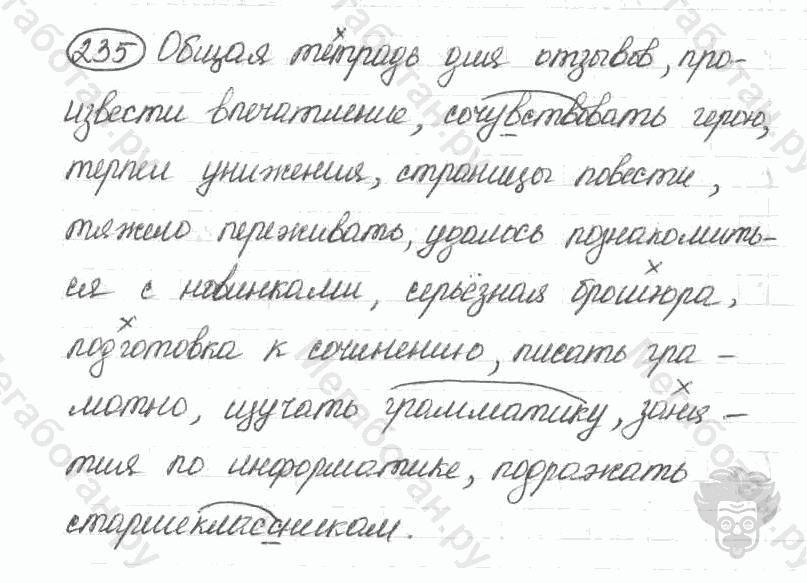 235 Общая тетрадь для отзывов, про-
извести впечатление, сочувствовать герою,
терпел унижения, страницы повести,
тяжело переживать, удалось познакомить-
ся с новинками, серьёзная брошюра,
подготовка к сочинению, писать гра-
мотно, изучать грамматику, заня-
тия по информатике, подражать
старшеклассникам.
Мегаботан.ру